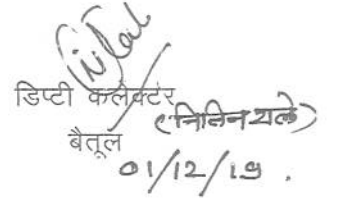 डिप्टी कलेक्टर
(नितिन टाले)
बैतूल
01/12/19.